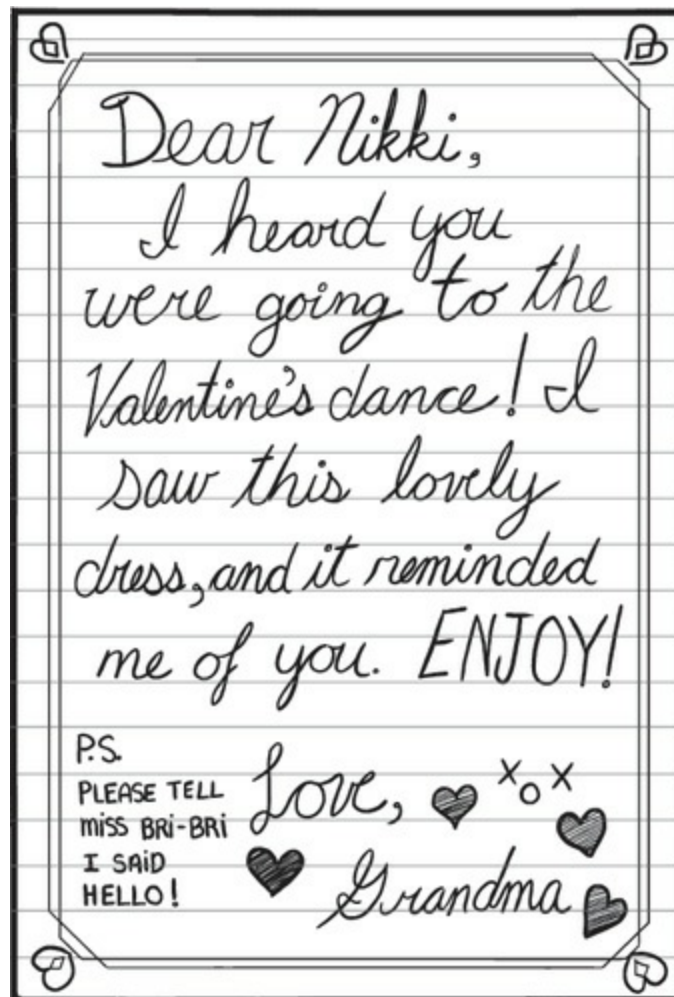 Dear Nikki,
I heard you
were going to the
Valentine's dance! I
saw this lovely
dress, and it reminded
me of you. ENJOY!
P.S.
PLEASE TELL
miss BRi-BRi
I SAiD
HELLO!
Love,
X O X
Grandma